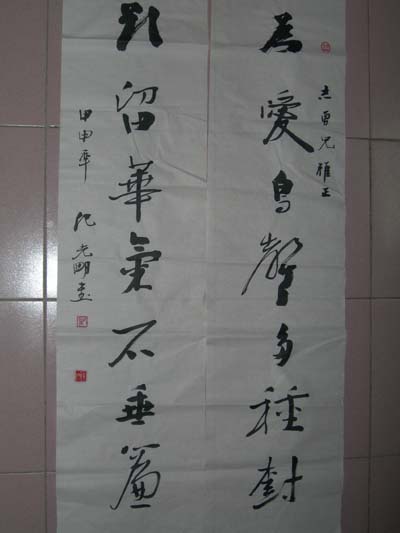 為愛鳥聲多種樹
志勇兄雅正
留華氣不垂簾
甲申年 光明書